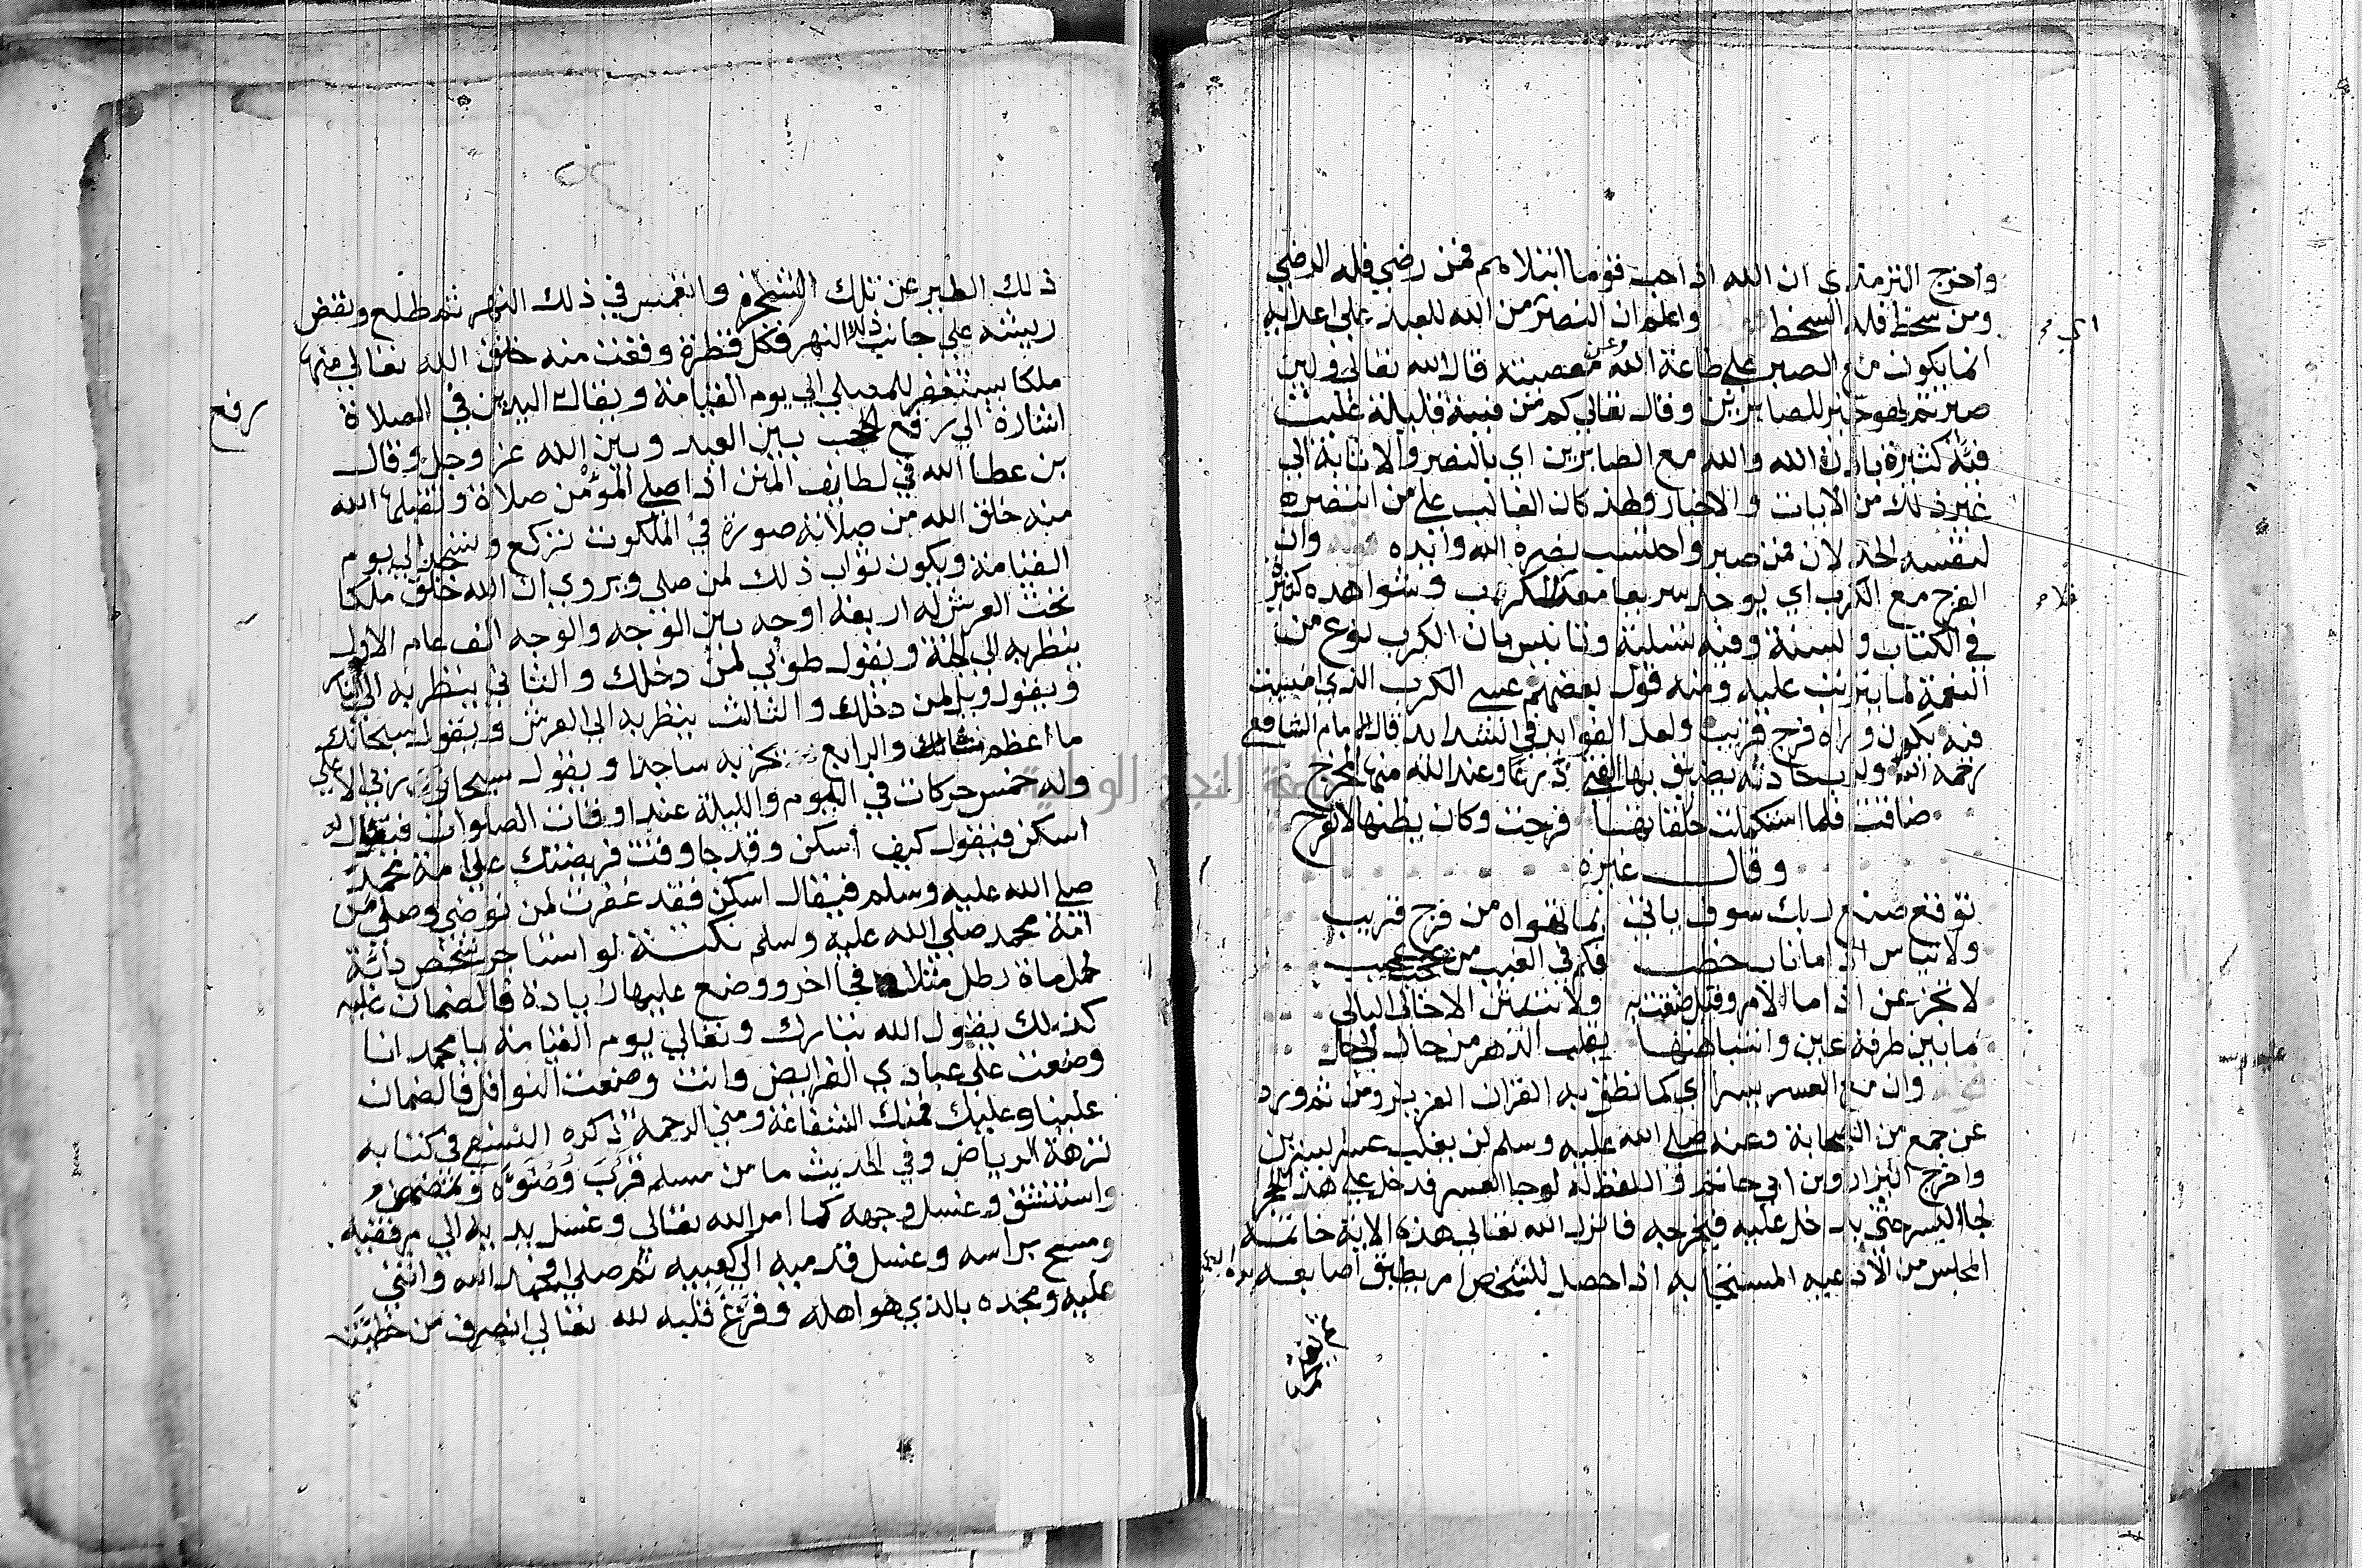 واخرج الترمذي ان الله اذا احب قوما ابتلاهم فمن رضي فله الرضي
ومن سخط فله السخط واعلم ان النصر من الله للعبد على اعدايه
انما يكون مع الصبر على طاعة الله وعن معصيته قال الله تعالى ولين
صبرتم لهو خير للصابرين وقال تعالى كم من فية قليلة غلبت
فئة كثيرة باذن الله والله مع الصابرين اي بالنصر والاثابة الي
غير ذلك من الايات والاخبار وهذا كان الغالب على من انتصر
لنفسه الخذلان فمن صبر واحتسب نصره الله وايده وان
الفرج مع الكرب اي يوجد سريعا معه الكرب وشواهده كثيرة
في الكتاب والسنة وفيه تسلية وتانيس بان الكرب نوع من
النعمة لما يترتب عليه ومنه قول بعضهم عسى الكرب الذي امسيت
فيه يكون وراه فرج قريب ولعل الفوايد في الشدايد قال الامام الشافعي
رحمه الله ولرب حادثة يضيق بها الفتى ذرعا وعند الله منها المخرج
ضاقت فلما استكملت حلقاتها فرجت وكان يظنها لا تفرج
وقال غيره
توقع صنع ربك سوف ياتي بما تهواه من فرج قريب
ولا تياس اذا ما ناب خطب فكم في الغيب من عجب عجيب
لا تجزعن اذا ما الامر وقد ضقت به ولا تبيتن الا خالي البالي
ما بين طرفة عين وانتباهتها يقلب الدهر من حال الى حال
وان مع العسر يسرا اي كما نطق به القران العزيز ومن ثم ورد
عن جمع من الصحابة وعنه صلى الله عليه وسلم لن يغلب عسر يسرين
واخرج البزار وبن ابي حاتم واللفظ له لو جا العسر فدخل على هذا الحجر
لجا اليسر حتى يدخل عليه فيخرجه فانزل الله تعالى هذه الاية خاتمة
المجلس من الادعيه المستجابه اذا احصل للشخص امر يطبق اصابعه يده اليمنى
ذلك الطير عن تلك الشجرة وانغمس في ذلك النهر ثم طلع ونفض
ريشه على جانب ذلك النهر فكل قطرة وقعت منه خلق الله تعالى منها
ملكا يستغفر للمصلي الى يوم القيامة ويقال اليدين في الصلاة
رفع
اشارة الى رفع الحجب بين العبد وبين الله عز وجل وقال
بن عطا الله في لطايف المنن اذا صلى المؤمن صلاة وتقبلها الله
منه خلق الله من صلاته صورة في الملكوت تركع وتسجد الى يوم
القيامة ويكون ثواب ذلك لمن صلى ويروي ان الله خلق ملكا
تحت العرش له اربعة اوجه بين الوجه والوجه الف عام الاول
ينظر به الى الجنة ويقول طوبى لمن دخلك والثاني ينظر به الى النار
ويقول ويل لمن دخلك والثالث ينظر به الى العرش ويقول سبحانك
ما اعظم شانك والرابع يخر به ساجدا ويقول سبحان ربي الاعلى
وله خمس حركات في اليوم والليلة عند اوقات الصلوات فيقال له
اسكن فيقول كيف اسكن وقد جا وقت فريضتك على امة محمد
صلى الله عليه وسلم فيقال اسكن فقد غفرت لمن توضي وصلى من
امة محمد صلى الله عليه وسلم نكتة لو استاجر شخص دابة
لحمل ماة رطل مثلا فجا اخر ووضع عليها زيادة فالضمان عليه
كذلك يقول الله تبارك وتعالى يوم القيامة يا محمد انا
وضعت على عبادي الفرايض وانت وضعت النوافل فالضمان
علينا وعليك فمنك الشفاعة ومني الرحمة ذكره النسفي في كتابه
نزهة الرياض وفي الحديث ما من مسلم قرب وضوءه وتمضمض
واستنشق وغسل وجهه كما امر الله تعالى وغسل يديه الى مرفقيه
ومسح براسه وغسل قدميه الى كعبيه ثم صلى وحمد الله واثنى
عليه ومجده بالذي هو اهله وفرغ قلبه لله تعالى انصرف من خطيئته